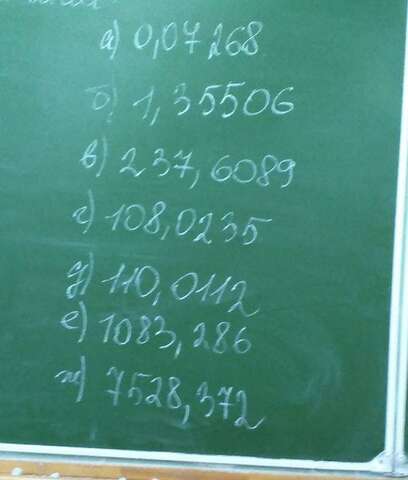 а) 0,07268
б) 1,35506
в) 237,6089
г) 108,0235
д) 110,0112
е) 1083,286
ж) 7528,372